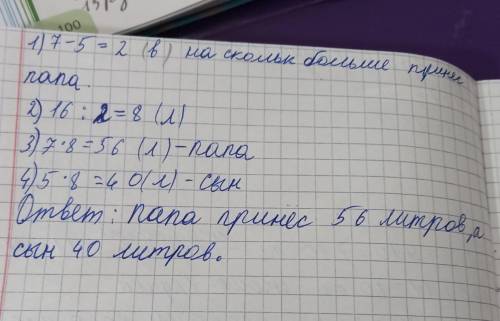 100
1) 7-5=2 (в) на скольк больше принес
папа.
2) 16 : 2=8 (л)
3) 7·8=56 (л)-папа
4) 5·8 =40(л)- сын
Ответ: папа принёс 56 литров, а
сын 40 литров.